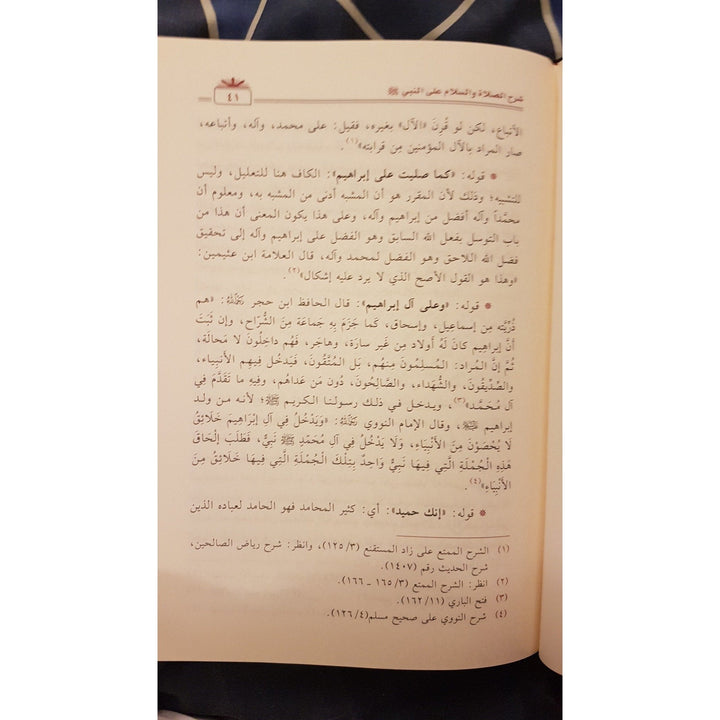 شرح الصلاة والسلام على النبي ﷺ
٤١
الأتباع، لكن لو قُرِنَ «الآل» بغيره، فقيل: على محمد، وآله، وأتباعه،
صار المراد بالآل المؤمنين مِن قرابته»(١).
* قوله: «كما صليت على إبراهيم»: الكاف هنا للتعليل، وليس
للتشبيه؛ وذلك لأن المقرر هو أن المشبه أدنى من المشبه به، ومعلوم أن
محمَّداً وآله أفضل من إبراهيم وآله، وعلى هذا يكون المعنى أن هذا من
باب التوسل بفعل الله السابق وهو الفضل على إبراهيم وآله إلى تحقيق
فضل الله اللاحق وهو الفضل لمحمد وآله، قال العلامة ابن عثيمين:
«وهذا هو القول الأصح الذي لا يرد عليه إشكال»(٢).
* قوله: «وعلى آل إبراهيم»: قال الحافظ ابن حجر رَحِمَهُ اللهُ: «هم
ذُرِّيَّته مِن إسماعيل، وإسحاق، كَما جَزَمَ بِهِ جَماعَة مِنَ الشُّرّاح، وإن ثَبَتَ
أنَّ إبراهيم كانَ لَهُ أولاد مِن غَير سارَة، وهاجَر، فَهُم داخِلُونَ لا مَحالَة،
ثُمَّ إنَّ المُراد: المُسلِمُونَ مِنهُم، بَل المُتَّقُونَ، فَيَدخُل فِيهِم الأَنبِياء،
والصِّدِّيقُونَ، والشُّهَداء، والصّالِحُونَ، دُون مَن عَداهُم، وفِيهِ ما تَقَدَّمَ فِي
آل مُحَمَّد»(٣)، ويدخل في ذلك رسولنا الكريم ﷺ؛ لأنه من ولد
إبراهيم ﷺ، وقال الإمام النووي رَحِمَهُ اللهُ: «وَيَدْخُلُ فِي آلِ إِبْرَاهِيمَ خَلَائِقُ
لَا يُحْصَوْنَ مِنَ الْأَنْبِيَاءِ، وَلَا يَدْخُلُ فِي آلِ مُحَمَّدٍ ﷺ نَبِيٌّ، فَطَلَبَ إِلْحَاقَ
هَذِهِ الْجُمْلَةِ الَّتِي فِيهَا نَبِيٌّ وَاحِدٌ بِتِلْكَ الْجُمْلَةِ الَّتِي فِيهَا خَلَائِقُ مِنَ
الْأَنْبِيَاءِ»(٤).
* قوله: «إنك حميد»: أي: كثير المحامد فهو الحامد لعباده الذين
(١) الشرح الممتع على زاد المستقنع (٣/ ١٢٥)، وانظر: شرح رياض الصالحين،
شرح الحديث رقم (١٤٠٧).
(٢) انظر: الشرح الممتع (٣/ ١٦٥ ـ ١٦٦).
(٣) فتح الباري (١١/ ١٦٢).
(٤) شرح النووي على صحيح مسلم(٤/ ١٢٦).